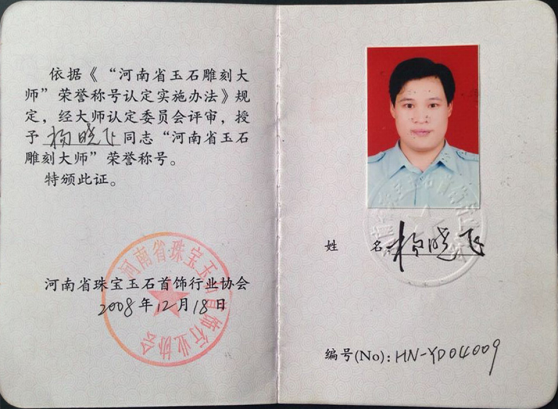 依据《“河南省玉石雕刻大
师”荣誉称号认定实施办法》规
定，经大师认定委员会评审，授
予杨晓飞同志“河南省玉石
雕刻大师”荣誉称号。
特颁此证。
河南省珠宝玉石首饰行业协会
2008年12月18日
河南省珠宝玉石首饰行业协会
姓 名 杨晓飞
编号(No): HN-YD04009